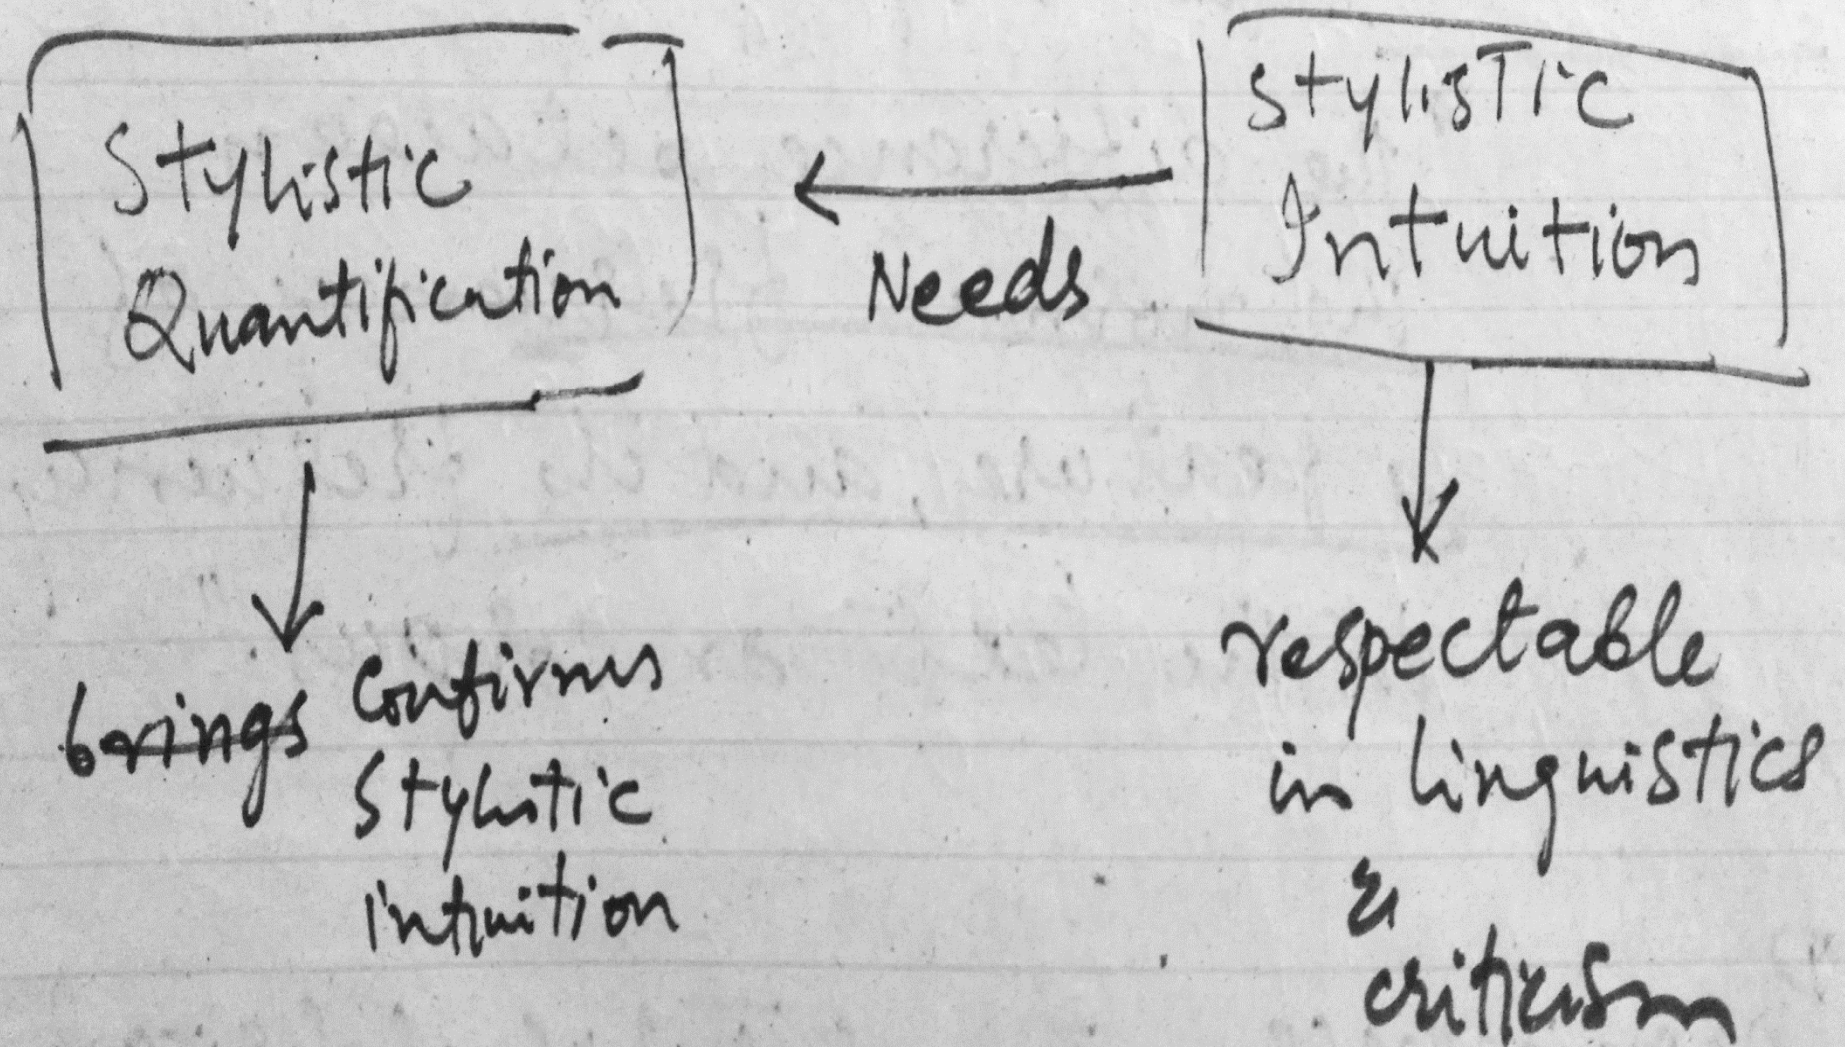 Stylistic
Quantification
Needs
Stylistic
Intuition
brings confirms
Stylistic
intuition
respectable
in linguistics
&
criticism